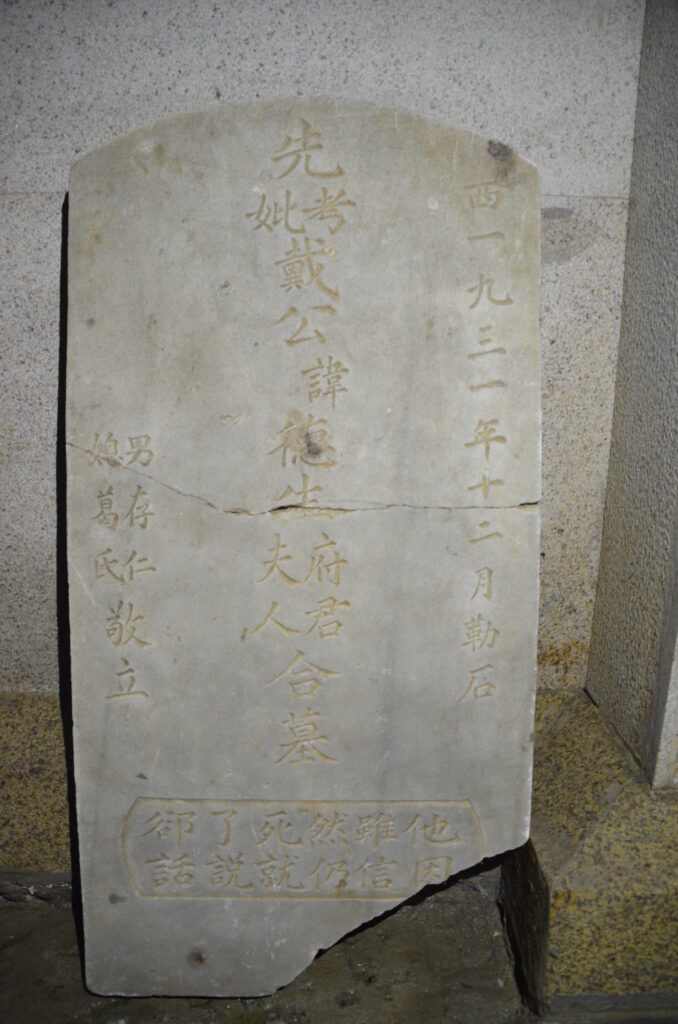 西一九三一年十二月勒石
先考妣戴公諱德生府君夫人合墓
男存仁
媳葛氏
敬立
他雖然死了郤
因信仍就説話